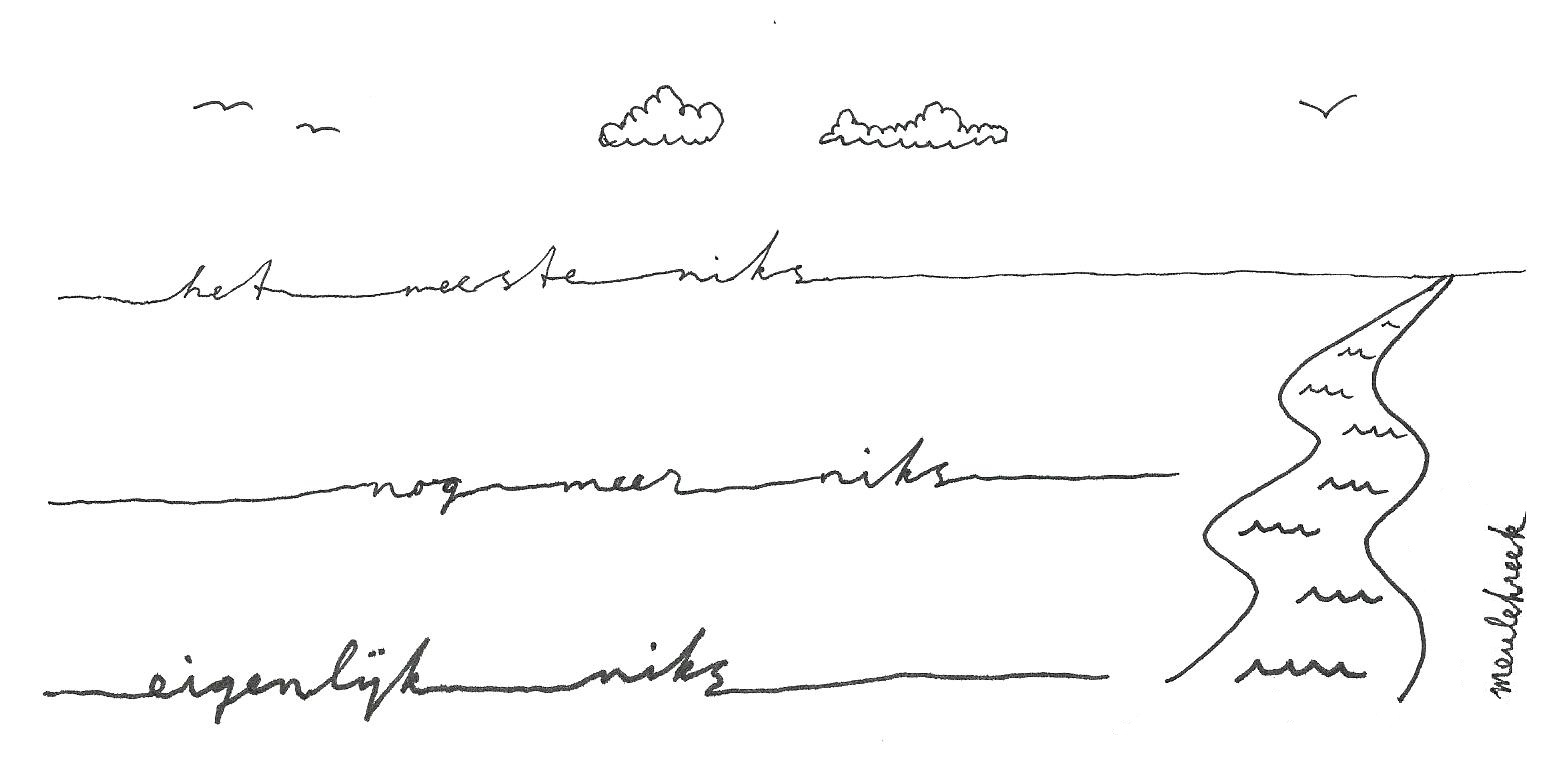 het meeste niks
nog meer niks
eigenlijk niks
meulekreek